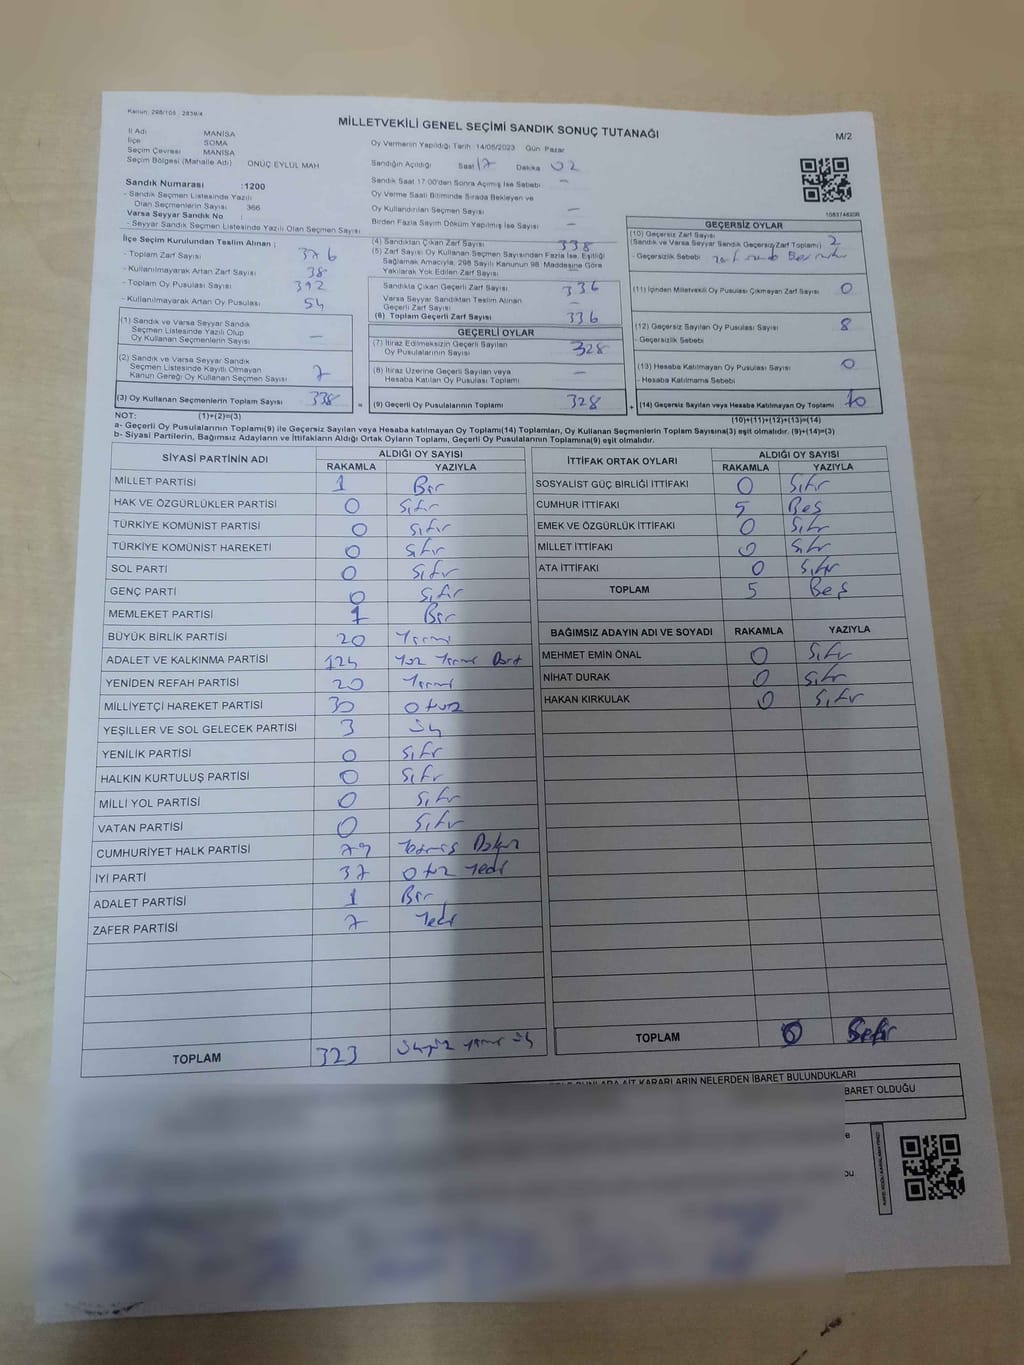 Kanun: 298/105 , 2839/4
MİLLETVEKİLİ GENEL SEÇİMİ SANDIK SONUÇ TUTANAĞI
M/2
İl Adı MANİSA
İlçe SOMA
Seçim Çevresi MANİSA
Seçim Bölgesi (Mahalle Adı) ONÜÇ EYLÜL MAH
Oy Vermenin Yapıldığı Tarih 14/05/2023 Gün Pazar
Sandığın Açıldığı Saat 17 Dakika 02
Sandık Numarası :1200
- Sandık Seçmen Listesinde Yazılı
Olan Seçmenlerin Sayısı 366
Varsa Seyyar Sandık No :
- Seyyar Sandık Seçmen Listesinde Yazılı Olan Seçmen Sayısı
Sandık Saat 17:00'den Sonra Açılmış İse Sebebi –
Oy Verme Saati Bitiminde Sırada Bekleyen ve
Oy Kullandırılan Seçmen Sayısı –
Birden Fazla Sayım Döküm Yapılmış İse Sayısı –
İlçe Seçim Kurulundan Teslim Alınan ;
- Toplam Zarf Sayısı 376
- Kullanılmayarak Artan Zarf Sayısı 38
- Toplam Oy Pusulası Sayısı 392
- Kullanılmayarak Artan Oy Pusulası 54
(1) Sandık ve Varsa Seyyar Sandık
Seçmen Listesinde Yazılı Olup
Oy Kullanan Seçmenlerin Sayısı –
(2) Sandık ve Varsa Seyyar Sandık
Seçmen Listesinde Kayıtlı Olmayan
Kanun Gereği Oy Kullanan Seçmen Sayısı 7
(3) Oy Kullanan Seçmenlerin Toplam Sayısı 338
(4) Sandıktan Çıkan Zarf Sayısı 338
(5) Zarf Sayısı Oy Kullanan Seçmen Sayısından Fazla İse, Eşitliği
Sağlamak Amacıyla, 298 Sayılı Kanunun 98. Maddesine Göre
Yakılarak Yok Edilen Zarf Sayısı –
Sandıkla Çıkan Geçerli Zarf Sayısı 336
Varsa Seyyar Sandıktan Teslim Alınan
Geçerli Zarf Sayısı –
(6) Toplam Geçerli Zarf Sayısı 336
GEÇERLİ OYLAR
(7) İtiraz Edilmeksizin Geçerli Sayılan
Oy Pusulalarının Sayısı 328
(8) İtiraz Üzerine Geçerli Sayılan veya
Hesaba Katılan Oy Pusulası Toplamı –
= (9) Geçerli Oy Pusulalarının Toplamı 328
GEÇERSİZ OYLAR
(10) Geçersiz Zarf Sayısı
(Sandık ve Varsa Seyyar Sandık Geçersiz Zarf Toplamı) 2
- Geçersizlik Sebebi
(11) İçinden Milletvekili Oy Pusulası Çıkmayan Zarf Sayısı 0
(12) Geçersiz Sayılan Oy Pusulası Sayısı 8
- Geçersizlik Sebebi
(13) Hesaba Katılmayan Oy Pusulası Sayısı 0
- Hesaba Katılmama Sebebi
+ (14) Geçersiz Sayılan veya Hesaba Katılmayan Oy Toplamı 10
NOT: (1)+(2)=(3) (10)+(11)+(12)+(13)=(14)
a- Geçerli Oy Pusulalarının Toplamı(9) ile Geçersiz Sayılan veya Hesaba Katılmayan Oy Toplamı(14) Toplamları, Oy Kullanan Seçmenlerin Toplam Sayısına(3) eşit olmalıdır. (9)+(14)=(3)
b- Siyasi Partilerin, Bağımsız Adayların ve İttifakların Aldığı Ortak Oyların Toplamı, Geçerli Oy Pusulalarının Toplamına(9) eşit olmalıdır.
SİYASİ PARTİNİN ADI ALDIĞI OY SAYISI
RAKAMLA YAZIYLA
MİLLET PARTİSİ 1 Bir
HAK VE ÖZGÜRLÜKLER PARTİSİ 0 Sıfır
TÜRKİYE KOMÜNİST PARTİSİ 0 Sıfır
TÜRKİYE KOMÜNİST HAREKETİ 0 Sıfır
SOL PARTİ 0 Sıfır
GENÇ PARTİ 0 Sıfır
MEMLEKET PARTİSİ 1 Bir
BÜYÜK BİRLİK PARTİSİ 20 Yirmi
ADALET VE KALKINMA PARTİSİ 124 Yüz Yirmi Dört
YENİDEN REFAH PARTİSİ 20 Yirmi
MİLLİYETÇİ HAREKET PARTİSİ 30 Otuz
YEŞİLLER VE SOL GELECEK PARTİSİ 3 Üç
YENİLİK PARTİSİ 0 Sıfır
HALKIN KURTULUŞ PARTİSİ 0 Sıfır
MİLLİ YOL PARTİSİ 0 Sıfır
VATAN PARTİSİ 0 Sıfır
CUMHURİYET HALK PARTİSİ 79 Yetmiş Dokuz
İYİ PARTİ 37 Otuz Yedi
ADALET PARTİSİ 1 Bir
ZAFER PARTİSİ 7 Yedi
TOPLAM 323 Üçyüz Yirmi Üç
İTTİFAK ORTAK OYLARI ALDIĞI OY SAYISI
RAKAMLA YAZIYLA
SOSYALİST GÜÇ BİRLİĞİ İTTİFAKI 0 Sıfır
CUMHUR İTTİFAKI 5 Beş
EMEK VE ÖZGÜRLÜK İTTİFAKI 0 Sıfır
MİLLET İTTİFAKI 0 Sıfır
ATA İTTİFAKI 0 Sıfır
TOPLAM 5 Beş
BAĞIMSIZ ADAYIN ADI VE SOYADI RAKAMLA YAZIYLA
MEHMET EMİN ÖNAL 0 Sıfır
NİHAT DURAK 0 Sıfır
HAKAN KIRKULAK 0 Sıfır
TOPLAM 0 Sıfır
KARARLARIN NELERDEN İBARET BULUNDUKLARI
BARET OLDUĞU